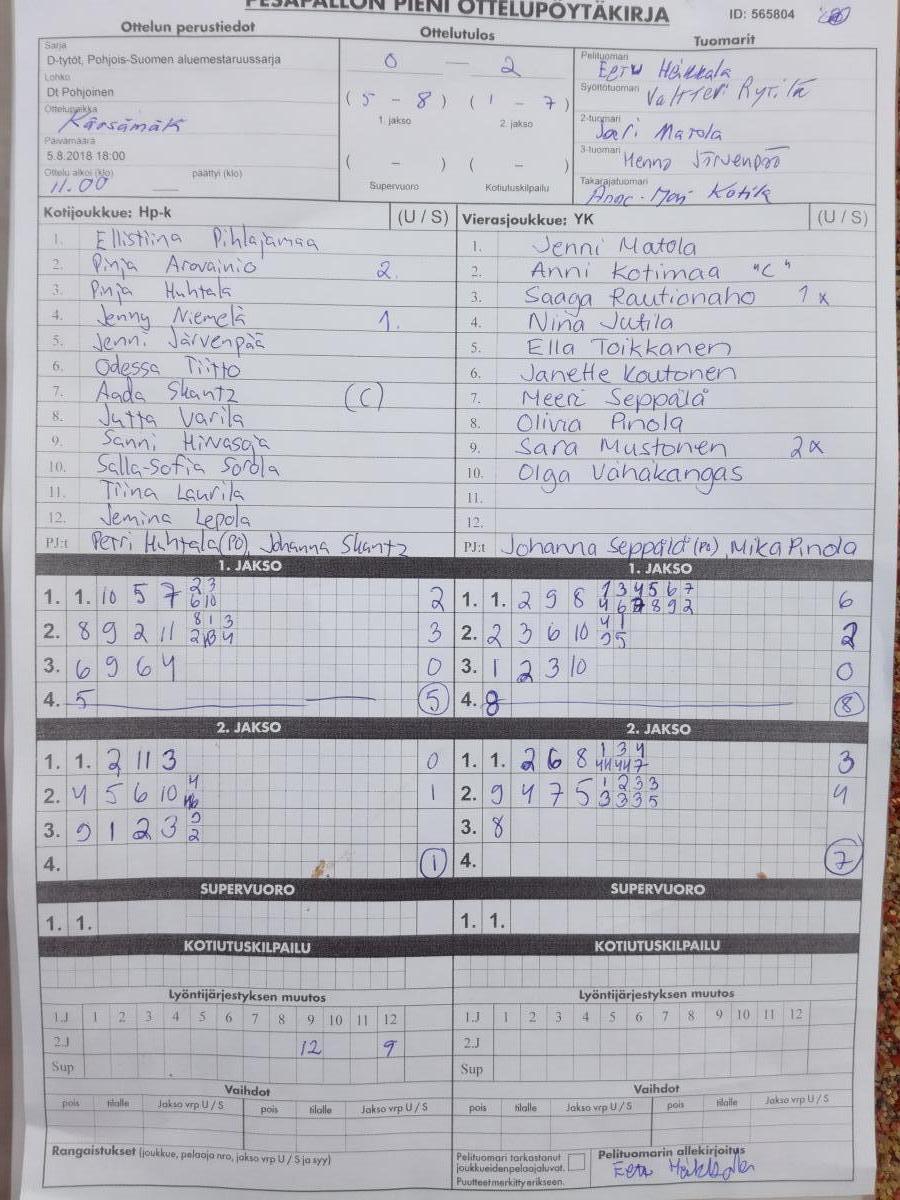 PESÄPALLON PIENI OTTELUPÖYTÄKIRJA
ID: 565804
Ottelun perustiedot
Sarja
D-tytöt, Pohjois-Suomen aluemestaruussarja
Lohko
Dt Pohjoinen
Ottelupaikka
Kärsämäk
Päivämäärä
5.8.2018 18:00
Ottelu alkoi (klo) päättyi (klo)
11.00
Ottelutulos
0 — 2
(5 - 8) (1 - 7)
1. jakso 2. jakso
( - ) ( - )
Supervuoro Kotiutuskilpailu
Tuomarit
Pelituomari
Eetu Heikkala
Syöttötuomari Valtteri
2-tuomari
Matola
3-tuomari Henna Järvenpää
Takarajatuomari
Kotila
Kotijoukkue: Hp-k (U / S)
1. Ellistiina Pihlajamaa
2. Pinja Arovainio 2.
3. Pinja Huhtala
4. Jenny Niemelä 1.
5. Jenni Järvenpää
6. Odessa Tiitto
7. Aada Skantz (C)
8. Jutta Varila
9. Sanni Hirvasoja
10. Salla-Sofia Sorola
11. Tiina Laurila
12. Jemina Lepola
PJ:t Petri Huhtala (PO), Johanna Skantz
Vierasjoukkue: YK (U / S)
1. Jenni Matola
2. Anni Kotimaa "C"
3. Saaga Rautionaho 1x
4. Nina Jutila
5. Ella Toikkanen
6. Janette Koutonen
7. Meeri Seppälä
8. Olivia Pinola
9. Sara Mustonen 2x
10. Olga Vähäkangas
11.
12.
PJ:t Johanna Seppälä (Po), Mika Pinola
1. JAKSO
1. 1. 10 5 7 2 3 6 10 2
2. 8 9 2 11 8 1 3 3
3. 6 9 6 4 0
4. 5 5
1. JAKSO
1. 1. 2 9 8 1 3 4 5 6 7 6
2. 2 3 6 10 4 1 2
3. 1 2 3 10 0
4. 8 8
2. JAKSO
1. 1. 2 11 3 0
2. 4 5 6 10 4 1
3. 9 1 2 3 2
4. 1
2. JAKSO
1. 1. 2 6 8 1 3 4 3
2. 9 4 7 5 1 2 3 3 3 3 3 5 4
3. 8
4. 7
SUPERVUORO
1. 1.
SUPERVUORO
1. 1.
KOTIUTUSKILPAILU
KOTIUTUSKILPAILU
Lyöntijärjestyksen muutos
1.J 1 2 3 4 5 6 7 8 9 10 11 12
2.J 12 9
Sup
Lyöntijärjestyksen muutos
1.J 1 2 3 4 5 6 7 8 9 10 11 12
2.J
Sup
Vaihdot
pois tilalle Jakso vrp U / S pois tilalle Jakso vrp U / S
Vaihdot
pois tilalle Jakso vrp U / S pois tilalle Jakso vrp U / S
Rangaistukset (joukkue, pelaaja nro, jakso vrp U / S ja syy)
Pelituomari tarkastanut
joukkueidenpelaajaluvat.
Puutteet merkitty erikseen.
Pelituomarin allekirjoitus
Eetu Heikkala